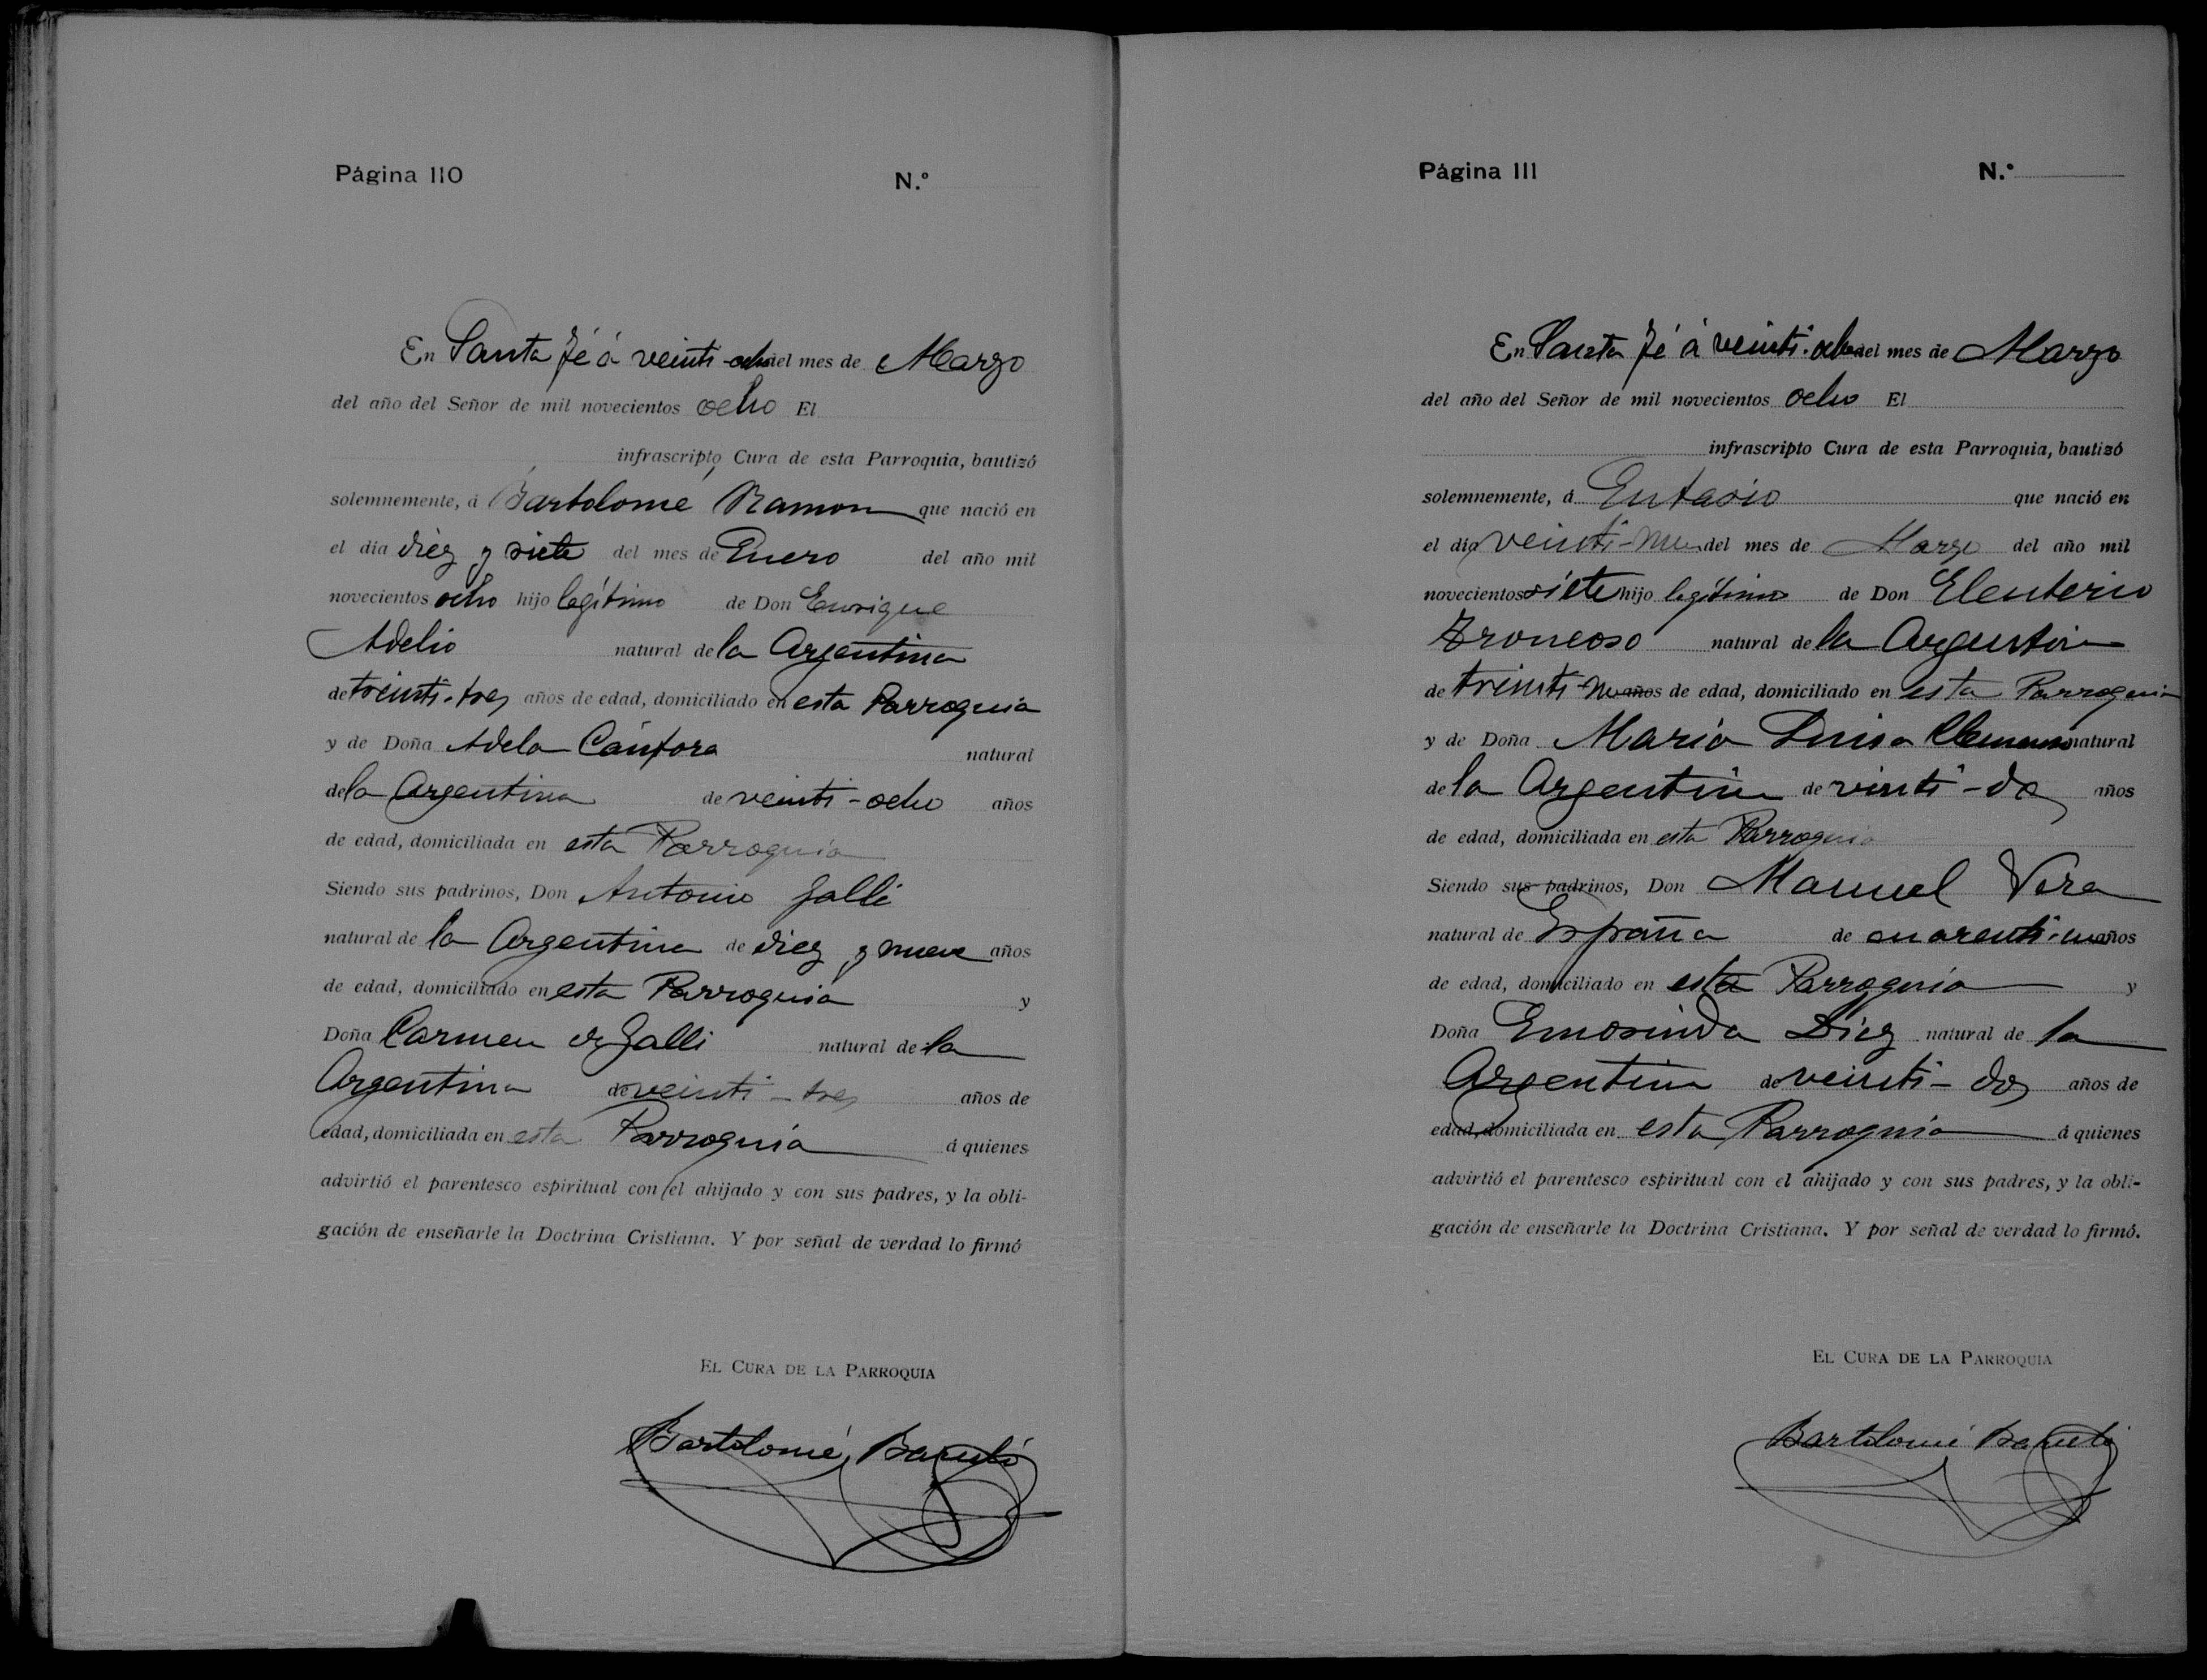 Página 110 N.º
En Santa Fé á veinti-ocho del mes de Marzo
del año del Señor de mil novecientos ocho El
infrascripto Cura de esta Parroquia, bautizó
solemnemente, á Bartolomé Ramon que nació en
el día diez y siete del mes de Enero del año mil
novecientos ocho hijo legítimo de Don Enrique
Adelio natural de la Argentina
de treinti-tres años de edad, domiciliado en esta Parroquia
y de Doña Adela Cántora natural
de la Argentina de veinti-ocho años
de edad, domiciliada en esta Parroquia
Siendo sus padrinos, Don Antonio Galli
natural de la Argentina de diez y nueve años
de edad, domiciliado en esta Parroquia y
Doña Carmen de Galli natural de la
Argentina de veinti-tres años de
edad, domiciliada en esta Parroquia á quienes
advirtió el parentesco espiritual con el ahijado y con sus padres, y la obli-
gación de enseñarle la Doctrina Cristiana. Y por señal de verdad lo firmó
EL CURA DE LA PARROQUIA
Bartolomé
Página 111 N.º
En Santa Fé á veinti-ocho del mes de Marzo
del año del Señor de mil novecientos ocho El
infrascripto Cura de esta Parroquia, bautizó
solemnemente, á Eutasio que nació en
el día del mes de Marzo del año mil
novecientos siete hijo legítimo de Don Eleuterio
Troncoso natural de la Argentina
de años de edad, domiciliado en esta Parroquia
y de Doña María Luisa natural
de la Argentina de vinti-dos años
de edad, domiciliada en esta Parroquia
Siendo sus padrinos, Don Manuel Vera
natural de España de años
de edad, domiciliado en esta Parroquia y
Doña Emosinda Diez natural de la
Argentina de veinti-dos años de
edad, domiciliada en esta Parroquia á quienes
advirtió el parentesco espiritual con el ahijado y con sus padres, y la obli-
gación de enseñarle la Doctrina Cristiana. Y por señal de verdad lo firmó.
EL CURA DE LA PARROQUIA
Bartolomé